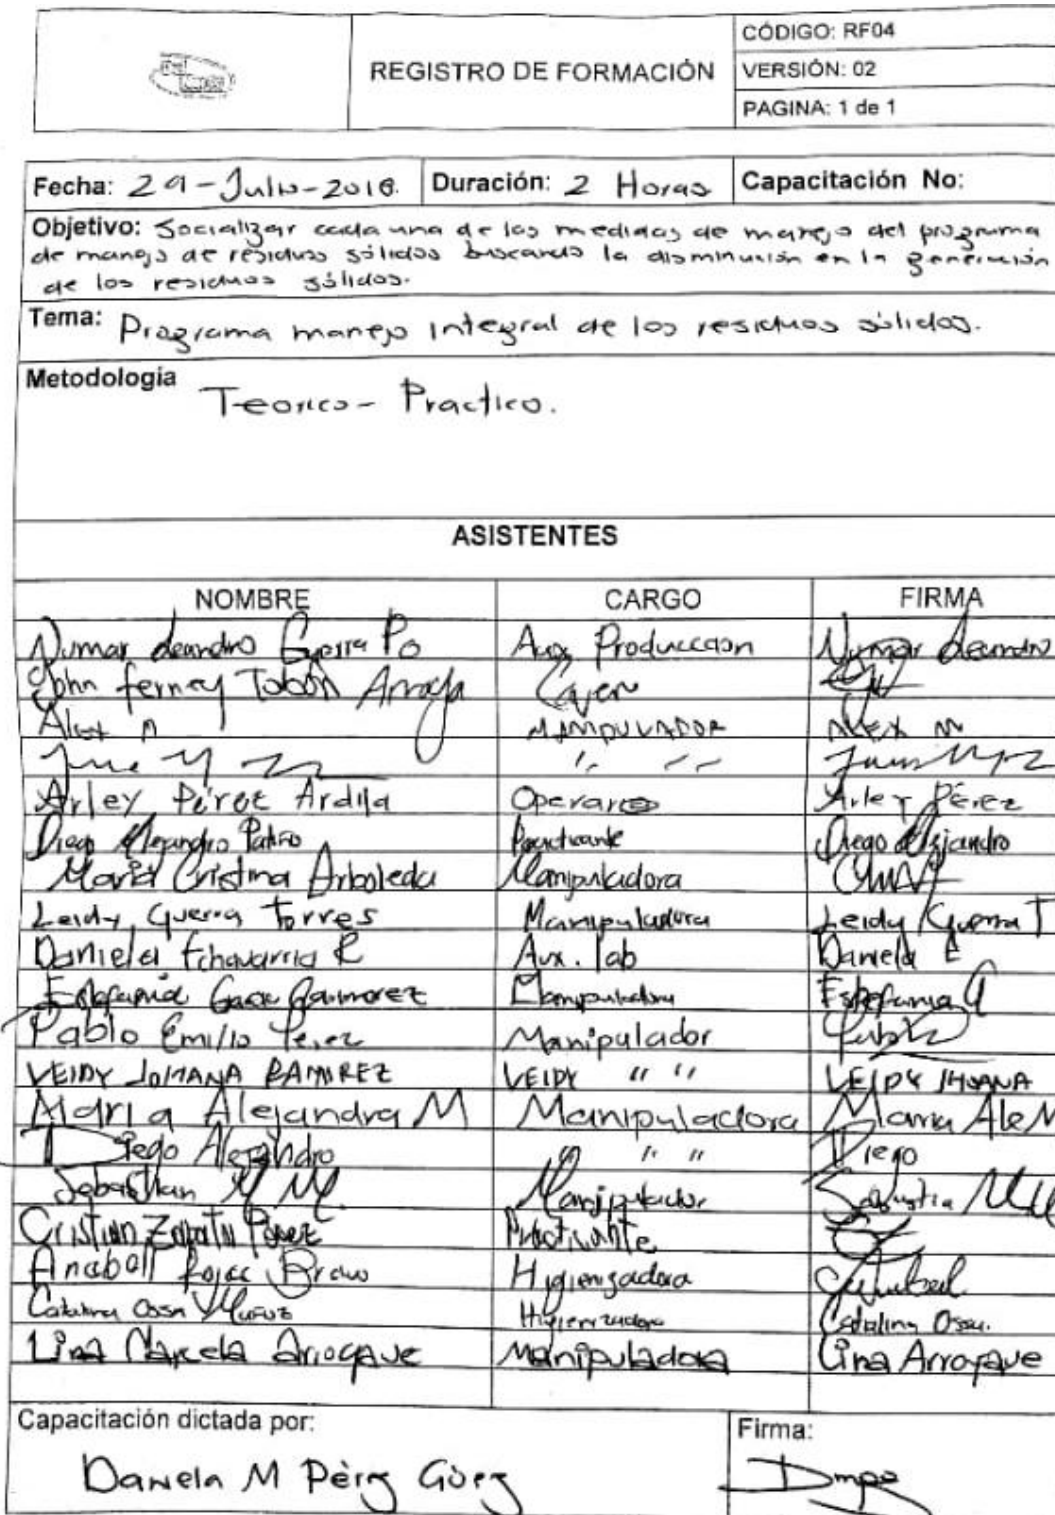 REGISTRO DE FORMACIÓN
CÓDIGO: RF04
VERSIÓN: 02
PAGINA: 1 de 1
Fecha: 29-Julio-2016. Duración: 2 Horas Capacitación No:
Objetivo: Socializar cada una de las medidas de manejo del programa
de manejo de residuos sólidos buscando la disminución en la generación
de los residuos sólidos.
Tema: Programa manejo integral de los residuos sólidos.
Metodología
Teorico-Practico.
ASISTENTES
NOMBRE CARGO FIRMA
Guerra Aux Produccion
John ferney Tobón Arroya
Alex M MANIPULADOR ALEX M
" "
Arley Pérez Ardila Operario Arley Pérez
Diego Alejandro Patiño Practicante Diego Alejandro
Maria Cristina Arboleda Manipuladora
Leidy Guerra Torres Manipuladora Leidy Guerra T
Daniela Echavarria R Aux. lab Daniela E
Estefania Manipuladora Estefania G
Pablo Emilio Perez Manipulador
LEIDY JOHANA RAMIREZ LEIDY " " LEIDY JHOANA
Maria Alejandra M Manipuladora Maria Ale M
Diego Alejandro " " Diego
Sebastian Manipulador
Cristian Zapata Pérez Practicante
Anabell Rojas Bravo Higienizadora
Catalina Ossa Muñoz Higienizadora Catalina Ossa.
Lina Marcela Arroyave Manipuladora Lina Arroyave
Capacitación dictada por: Firma:
Daniela M Pérez